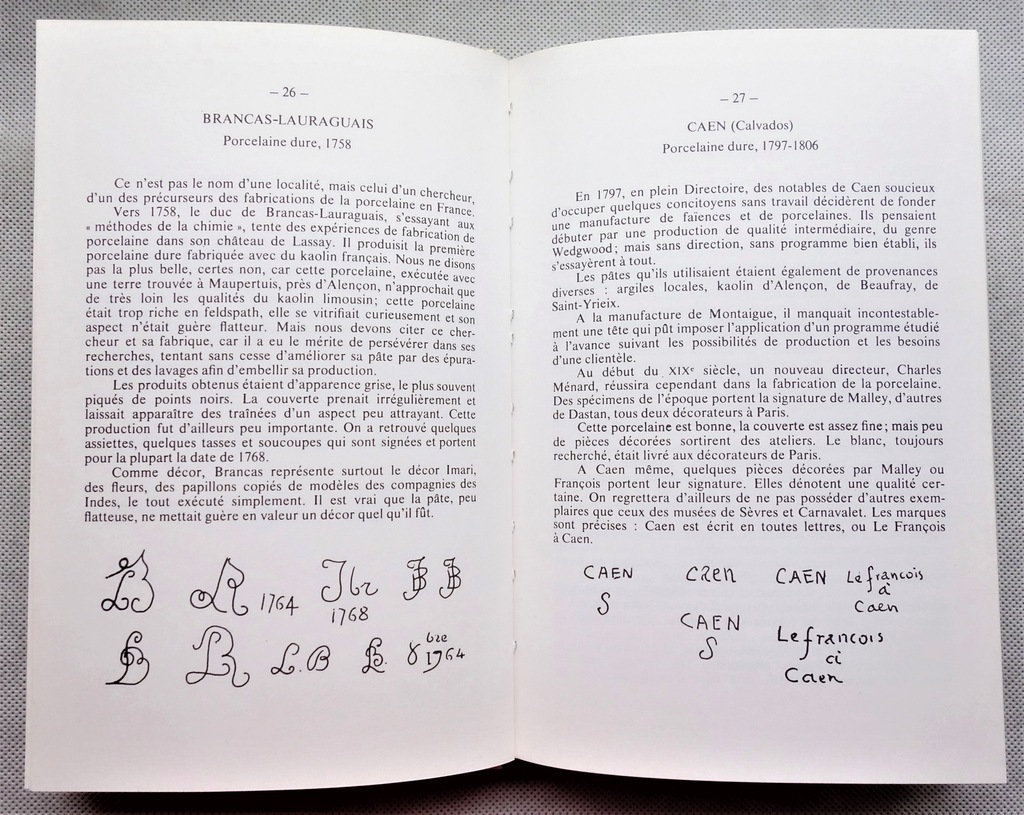 – 26 –
BRANCAS-LAURAGUAIS
Porcelaine dure, 1758
Ce n'est pas le nom d'une localité, mais celui d'un chercheur,
d'un des précurseurs des fabrications de la porcelaine en France.
Vers 1758, le duc de Brancas-Lauraguais, s'essayant aux
« méthodes de la chimie », tente des expériences de fabrication de
porcelaine dans son château de Lassay. Il produisit la première
porcelaine dure fabriquée avec du kaolin français. Nous ne disons
pas la plus belle, certes non, car cette porcelaine, exécutée avec
une terre trouvée à Maupertuis, près d'Alençon, n'approchait que
de très loin les qualités du kaolin limousin; cette porcelaine
était trop riche en feldspath, elle se vitrifiait curieusement et son
aspect n'était guère flatteur. Mais nous devons citer ce cher-
cheur et sa fabrique, car il a eu le mérite de persévérer dans ses
recherches, tentant sans cesse d'améliorer sa pâte par des épura-
tions et des lavages afin d'embellir sa production.
Les produits obtenus étaient d'apparence grise, le plus souvent
piqués de points noirs. La couverte prenait irrégulièrement et
laissait apparaître des traînées d'un aspect peu attrayant. Cette
production fut d'ailleurs peu importante. On a retrouvé quelques
assiettes, quelques tasses et soucoupes qui sont signées et portent
pour la plupart la date de 1768.
Comme décor, Brancas représente surtout le décor Imari,
des fleurs, des papillons copiés de modèles des compagnies des
Indes, le tout exécuté simplement. Il est vrai que la pâte, peu
flatteuse, ne mettait guère en valeur un décor quel qu'il fût.
1764
1768
L.B
8 bre 1764
– 27 –
CAEN (Calvados)
Porcelaine dure, 1797-1806
En 1797, en plein Directoire, des notables de Caen soucieux
d'occuper quelques concitoyens sans travail décidèrent de fonder
une manufacture de faïences et de porcelaines. Ils pensaient
débuter par une production de qualité intermédiaire, du genre
Wedgwood; mais sans direction, sans programme bien établi, ils
s'essayèrent à tout.
Les pâtes qu'ils utilisaient étaient également de provenances
diverses : argiles locales, kaolin d'Alençon, de Beaufray, de
Saint-Yrieix.
A la manufacture de Montaigue, il manquait incontestable-
ment une tête qui pût imposer l'application d'un programme étudié
à l'avance suivant les possibilités de production et les besoins
d'une clientèle.
Au début du XIXe siècle, un nouveau directeur, Charles
Ménard, réussira cependant dans la fabrication de la porcelaine.
Des spécimens de l'époque portent la signature de Malley, d'autres
de Dastan, tous deux décorateurs à Paris.
Cette porcelaine est bonne, la couverte est assez fine; mais peu
de pièces décorées sortirent des ateliers. Le blanc, toujours
recherché, était livré aux décorateurs de Paris.
A Caen même, quelques pièces décorées par Malley ou
François portent leur signature. Elles dénotent une qualité cer-
taine. On regrettera d'ailleurs de ne pas posséder d'autres exem-
plaires que ceux des musées de Sèvres et Carnavalet. Les marques
sont précises : Caen est écrit en toutes lettres, ou Le François
à Caen.
CAEN
S
caen
CAEN
Le francois
à
Caen
CAEN
S
Le francois
ci
Caen